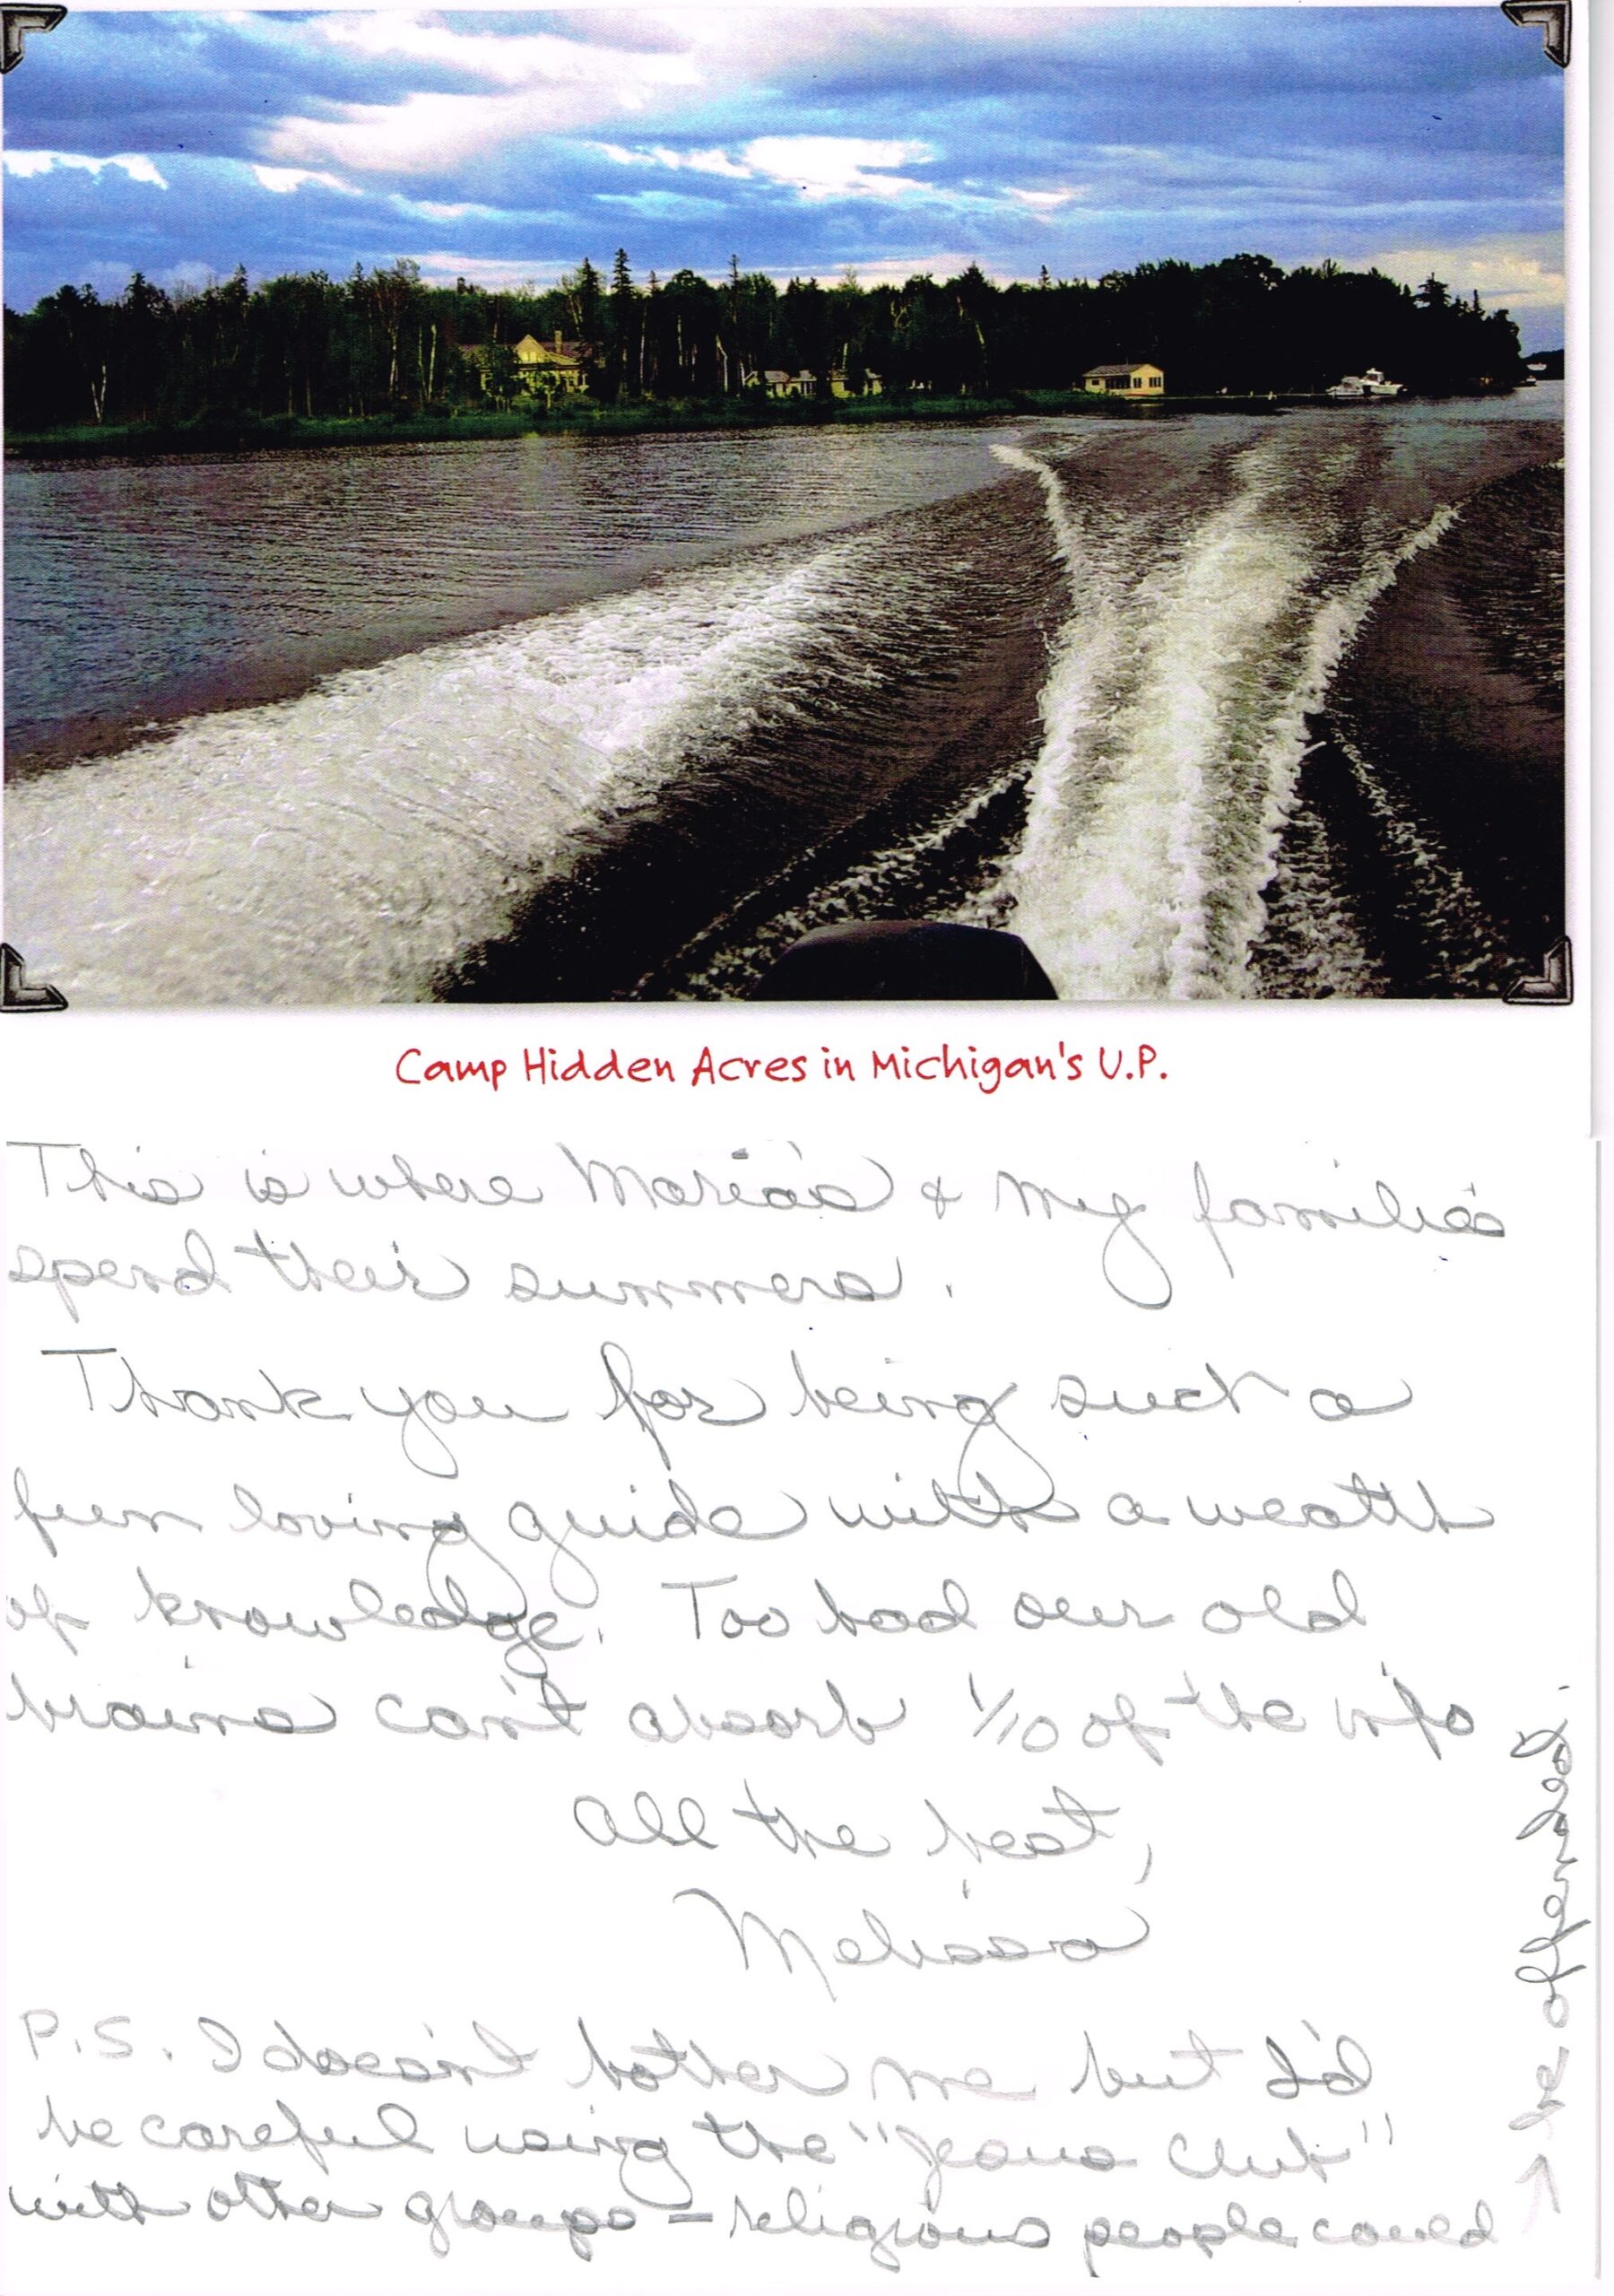 Camp Hidden Acres in Michigan's U.P.
This is where Maria's & my familie's
spend their summers.
Thank you for being such a
fun loving guide with a wealth
of knowledge. Too bad our old
brains can't absorb 1/10 of the info
All the best,
Melissa
P.S. I doesn't bother me but I'd
be careful using the "Jesus Club"
with other groups – religious people could
→ be offended.